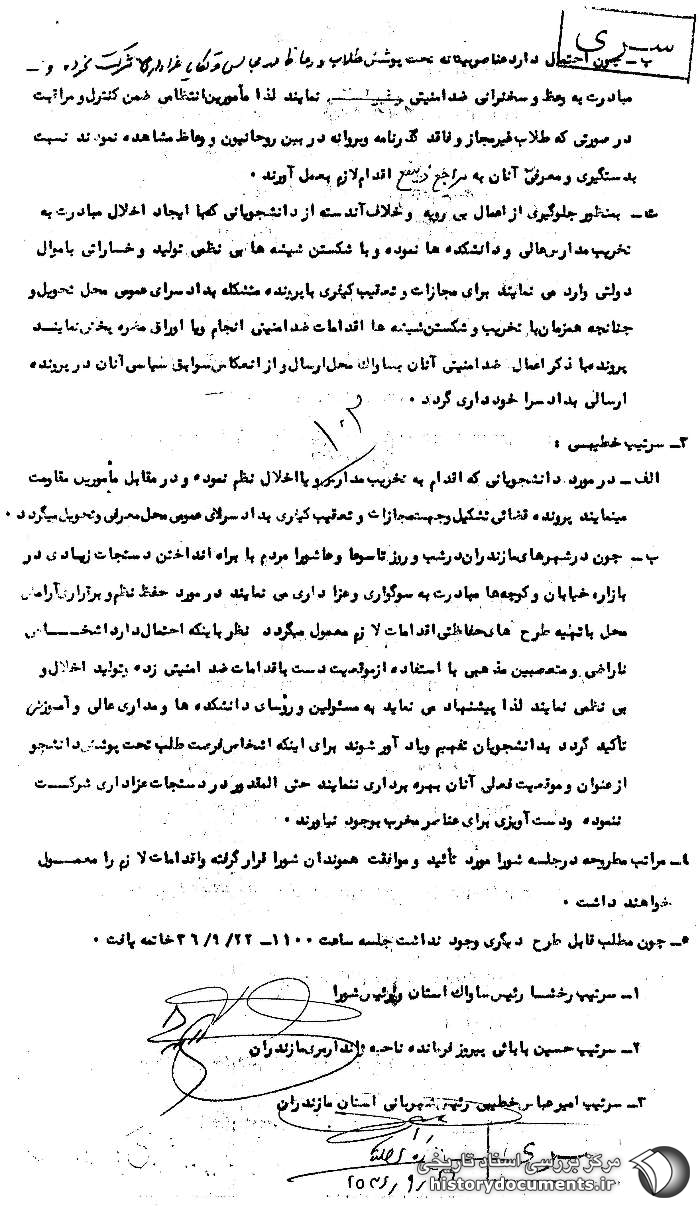 سری
ب ـ چون احتمال دارد عناصر بیگانه تحت پوشش طلاب و وعاظ در مجالس و تکایا عزاداری شرکت کرده و ـ
مبادرت به وعظ و سخنرانی ضد امنیتی نمایند لذا مأمورین انتظامی ضمن کنترل و مراقبت
در صورتی که طلاب غیرمجاز و فاقد گذرنامه و پروانه در بین روحانیون و وعاظ مشاهده نمودند نسبت
بدستگیری و معرفی آنان به مراجع ذینفع اقدام لازم بعمل آورند ۰
ت ـ بمنظور جلوگیری از اعمال بی رویه و خلاف آندسته از دانشجویانی که با ایجاد اخلال مبادرت به
تخریب مدارس عالی و دانشکده ها نموده و با شکستن شیشه ها بی نظمی تولید و خساراتی باموال
دولتی وارد می نمایند برای مجازات و تعقیب کیفری با پرونده متشکله بدادسرای عمومی محل تحویل و
چنانچه همزمان با تخریب و شکستن شیشه ها اقدامات ضد امنیتی انجام ویا اوراق مضره پخش نمایند
پرونده با ذکر اعمال ضد امنیتی آنان بساواک محل ارسال و از انعکاس سوابق سیاسی آنان در پرونده
ارسالی بدادسرا خودداری گردد ۰
۳ـ سرتیپ خطیبی :
الف ـ در مورد دانشجویانی که اقدام به تخریب مدارس و یا اخلال نظم نموده و در مقابل مأمورین مقاومت
مینمایند پرونده قضائی تشکیل و جهت مجازات و تعقیب کیفری بدادسرای عمومی محل معرفی و تحویل میگردد ۰
ب ـ چون در شهرهای مازندران در شب و روز تاسوعا و عاشورا مردم با براه انداختن دستجات زیادی در
بازار، خیابان و کوچه ها مبادرت به سوگواری و عزاداری می نمایند در مورد حفظ نظم و برقراری آرامش
محل با تهیه طرح های حفاظتی اقدامات لازم معمول میگردد نظر باینکه احتمال دارد اشخـــاص
ناراضی و متعصبین مذهبی با استفاده از موقعیت دست باقدامات ضد امنیتی زده و تولید اخلال و
بی نظمی نمایند لذا پیشنهاد می نماید به مسئولین و رؤسای دانشکده ها و مدارس عالی و آموزش
تأکید گردد بدانشجویان تفهیم ویاد آور شوند برای اینکه اشخاص فرصت طلب تحت پوشش دانشجو
از عنوان و موقعیت فعلی آنان بهره برداری ننمایند حتی المقدور در دستجات عزاداری شرکـت
ننموده ودست آویزی برای عناصر مخرب بوجود نیاورند ۰
٤ـ مراتب مطروحه در جلسه شورا مورد تأئید و موافقت هموندان شورا قرار گرفته و اقدامات لازم را معمـــول
خواهند داشت ۰
٥ـ چون مطلب قابل طرح دیگری وجود نداشت جلسه ساعت ۱۱۰۰ـ ۳۶/۹/۲۲ خاتمه یافت ۰
۱ـ سرتیپ رخشا رئیس ساواک استان و رئیس شورا
۲ـ سرتیپ حسین بابائی پیروز فرمانده ناحیه ژاندارمری مازندران
۳ـ سرتیپ امیرعباس خطیبی رئیس شهربانی استان مازندران
سری
مرکز بررسی اسناد تاریخی
historydocuments.ir